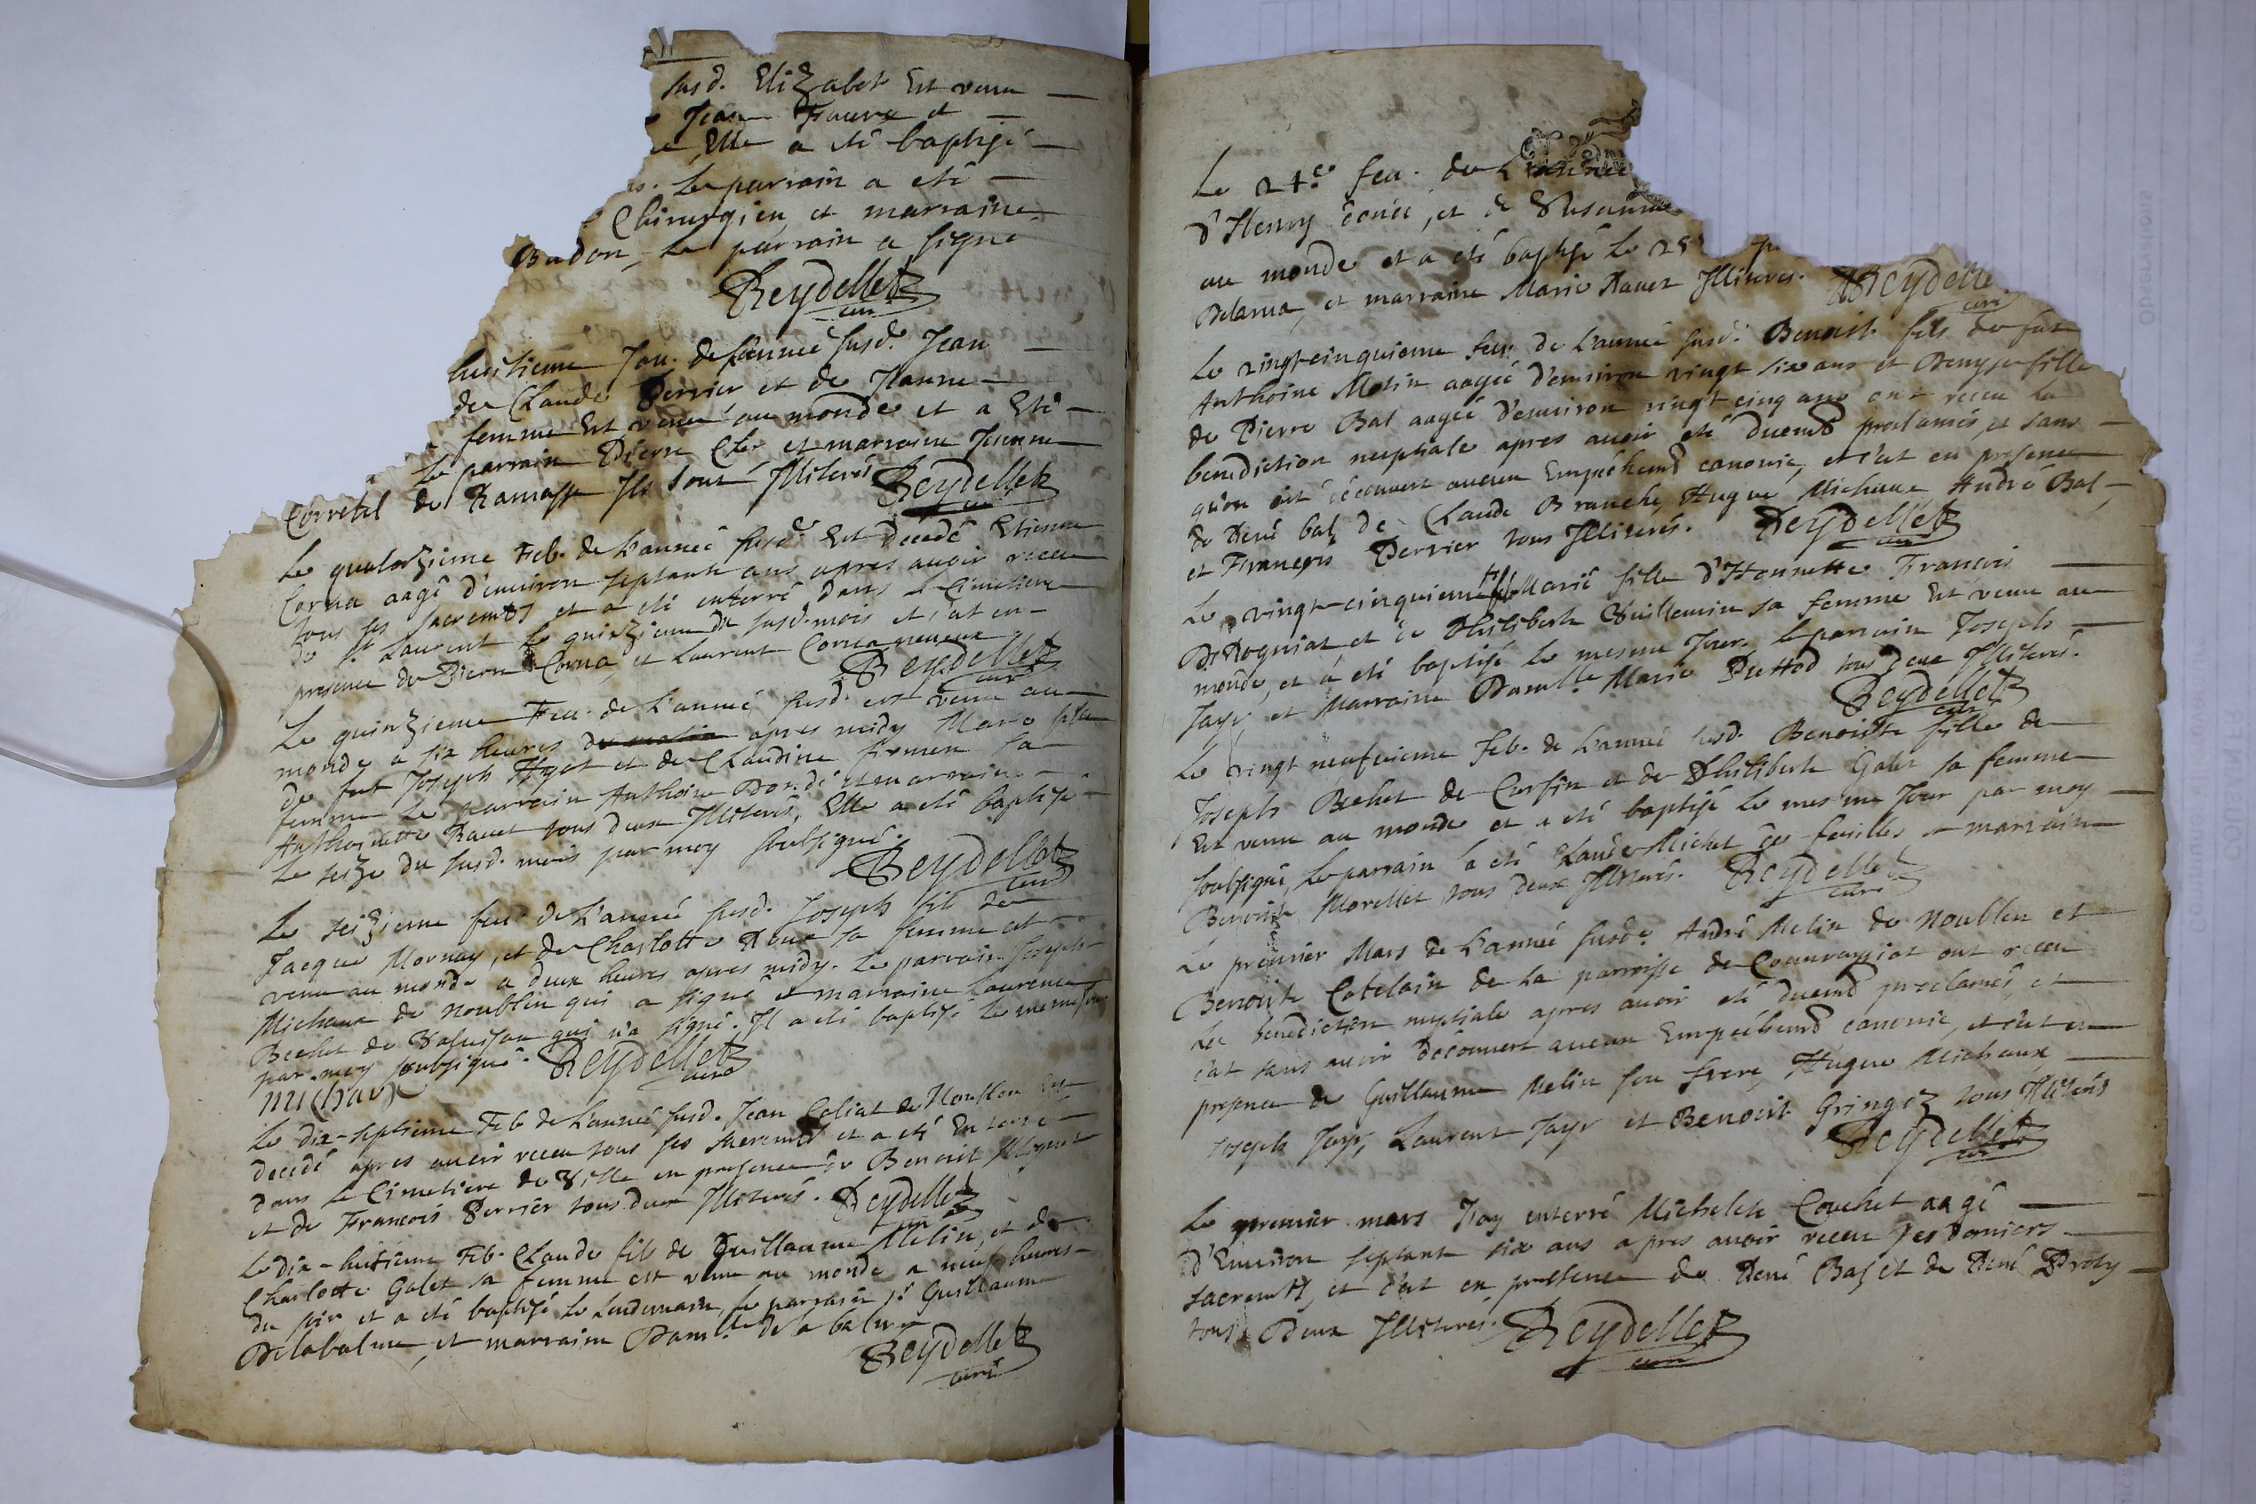 susd. Elizabet Est venu
Jean Faure et
Elle a eté baptisé
Le parrain a eté
Chirurgien et marraine
Budon, Le parrain a signé
Reydellet
curé
huitieme Jan. de L'année susd. Jean
de Claude Perrier et de Jeanne
femme Est venu au monde et a Eté
Le parrain Pierre et marraine Jeanne
Corretel de Ramasse Ils sont Illiterés Reydellet
curé
Le quatorzieme Feb. de L'année susd. Est decedé Etienne
Corna aagé d'environ septante ans apres avoir receu
tous ses sacremts et a eté enterré dans le Cimetiere
de St. Laurent le quinzieme du susd. mois et c'at en
presence de Pierre Corna, et Laurent Corna
Reydellet
curé
Le quinzieme Feu. de L'année susd. est venu au
monde a six heures apres midy Marie fille
de fut Joseph et de Claudine firmen sa
femme Le parrain Anthoine et marraine
Anthoinette Ravet tous deux Illiterés, Elle a eté baptisé
Le seize du susd. mois par moy soubsigné.
Reydellet
curé
Le seizieme feu. de L'année susd. Joseph fils de
Jacque Mornay, et de Charlotte Roux sa femme est
venu au monde a deux heures apres midy. Le parrain Joseph
Michaux de noublen qui a signé et marraine Laurence
Bechet de qui n'a signé. Il a eté baptisé le mesme Jour
par moy soubsigné. Reydellet
curé
michaux
Le dix-septieme Feb de L'année susd. Jean Caliat de Noublen Est
decedé apres avoir receu tous ses sacremts et a eté Enterré
dans Le Cimetiere de Ville en presence de Benoit
et de Francois Perrier tous deux Illiterés. Reydellet
Le dix-huitieme Feb. Claude fils de Guillaume Melin, et de
Charlotte Galet sa femme est venu au monde a neuf heures
du soir et a eté baptisé le Lendemain, le parrain Sr. Guillaume
Delabalme et marraine Damlle. de la balme
Reydellet
curé
Le 24e. feu. de L'année
d'Henry et de Susanne
au monde et a eté baptisé Le 25
Delarua, et marraine Marie Ravet Illiterés. Reydelle
curé
Le vingt-cinquieme feu. de L'année susd. Benoist fils de fut
Anthoine Melin aagéé d'environ vingt six ans et Denyse fille
de Pierre Bal aagéé d'environ vingt cinq ans ont receu La
benediction nuptiale apres avoir eté duemt proclamés, et sans
qu'on ait découvert aucun Empéchemt canonic, et c'at en presence
de René bal, de Claude Branche, Hugue Michaux, André Bal,
et François Perrier tous Illiterés. Reydellet
curé
Le vingt-cinquieme Marie fille d'Honnette Francois
Drogniat et de Philiberte Vuillemin sa femme Est venu au
monde, et a eté baptisé le mesme Jour. Le parrain Joseph
Jayr et Marraine Damlle. Marie tous deux Illiterés.
Reydellet
curé
Le vingt neufvieme Feb. de L'année susd. Benoiste fille de
Joseph Bechet de Cuffin et de Philiberte Galet sa femme
Est venu au monde et a eté baptisé Le mesme Jour par moy
soubsigné, Le parrain a eté Claude Michet de feuilles et marraine
Benoiste Morellet tous deux Illiterés. Reydellet
curé
Le premier Mars de L'année susde. André Melin de Noublen et
Benoiste Catelain de La parroisse de ont receu
La benediction nuptiale apres avoir eté duemt proclamés, et
c'at sans avoir découvert aucun Empéchemt canonic, et c'at en
presence de Guillaume Melin son frere, Hugue Michaux,
Joseph Jayr, Laurent Jayr et Benoit Gringoz tous Illiterés
Reydellet
curé
Le premier mars J'ay enterré Michelete Couchet aagé
d'Environ septante six ans apres avoir receu Ses derniers
sacremts, et c'at en presence de René Bal, et de René Proty
tous Deux Illiterés. Reydellet
curé